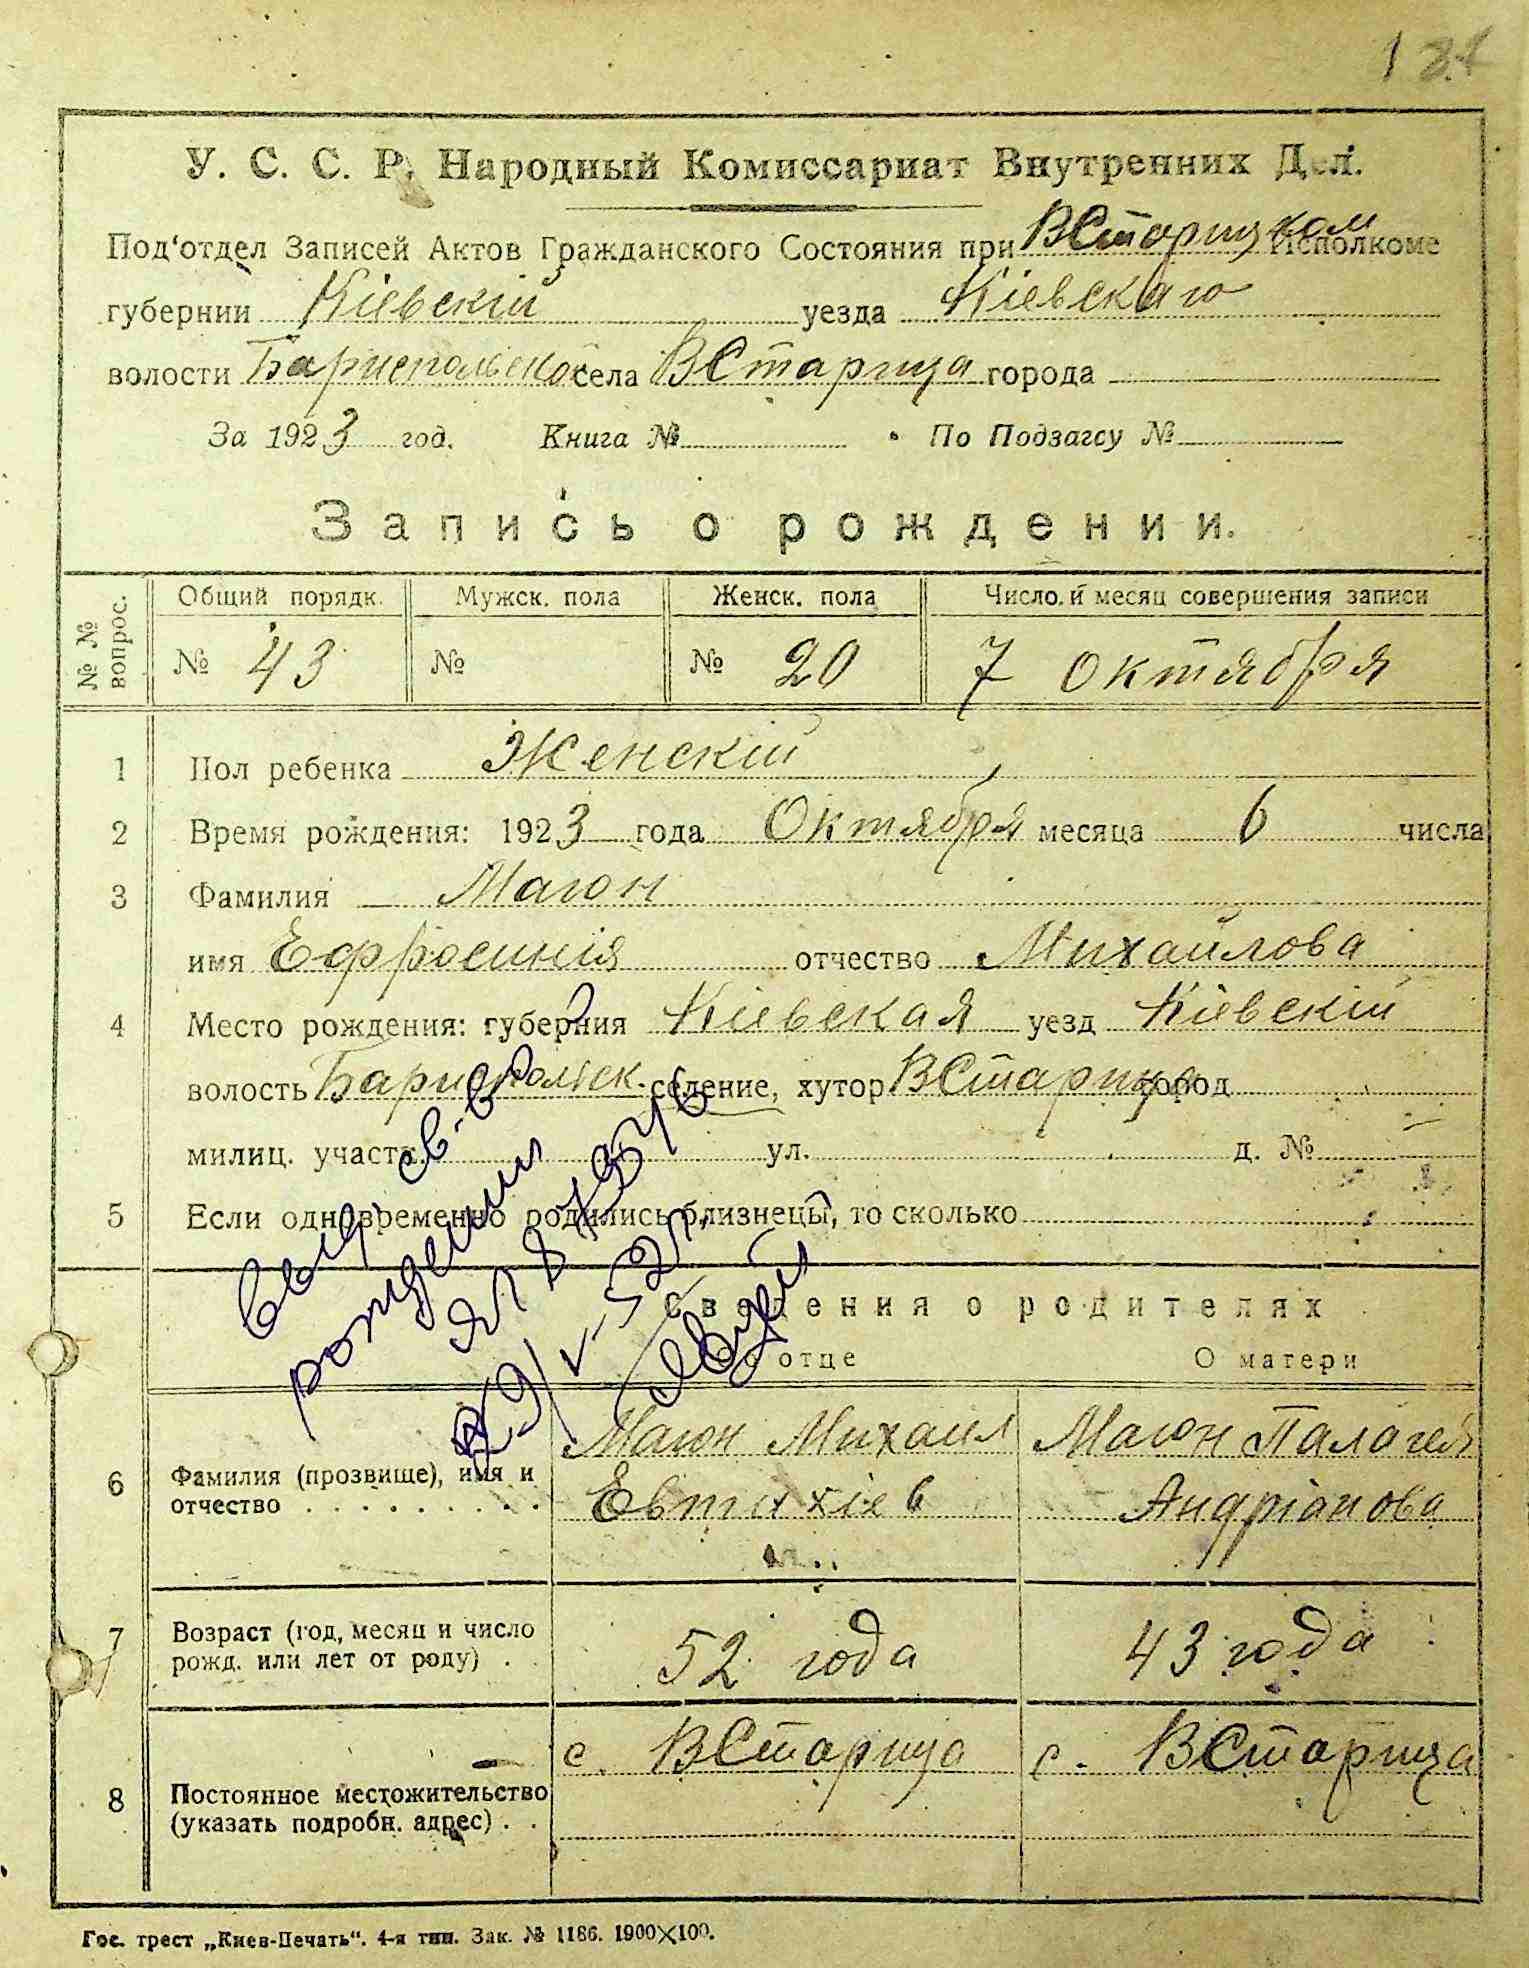 У. С. С. Р. Народный Комиссариат Внутренних Дел.
Под'отдел Записей Актов Гражданского Состояния при ВСтарицком Исполкоме
губернии Кіевскій уезда Кіевскаго
волости Бариспольской села ВСтарица города
За 1923 год. Книга № По Подзагсу №
Запись о рождении.
№ № вопрос. Общий порядк. Мужск. пола Женск. пола Число и месяц совершения записи
№ 43 № № 20 7 Октября
1 Пол ребенка Женскій
2 Время рождения: 1923 года Октября месяца 6 числа
3 Фамилия Магон
имя Ефросинія отчество Михайлова
4 Место рождения: губерния Кіевская уезд Кіевскій
волость Барispольск. селение, хутор ВСтарица город
милиц. участ. ул. д. №
5 Если одновременно родились близнецы, то сколько
выд. св-во
рождения
Сведения о родителях
О отце О матери
6 Фамилия (прозвище), имя и отчество Магон Михаил Евтихіев Магон Палагея Андріанова
7 Возраст (год, месяц и число рожд. или лет от роду) 52 года 43 года
8 Постоянное местожительство (указать подробн. адрес) с. ВСтарица с. ВСтарица
Гос. трест „Киев-Печать“. 4-я тип. Зак. № 1186. 1900×100.